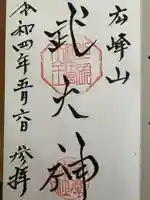 広峰山
武大神
令和四年五月六日 参拝